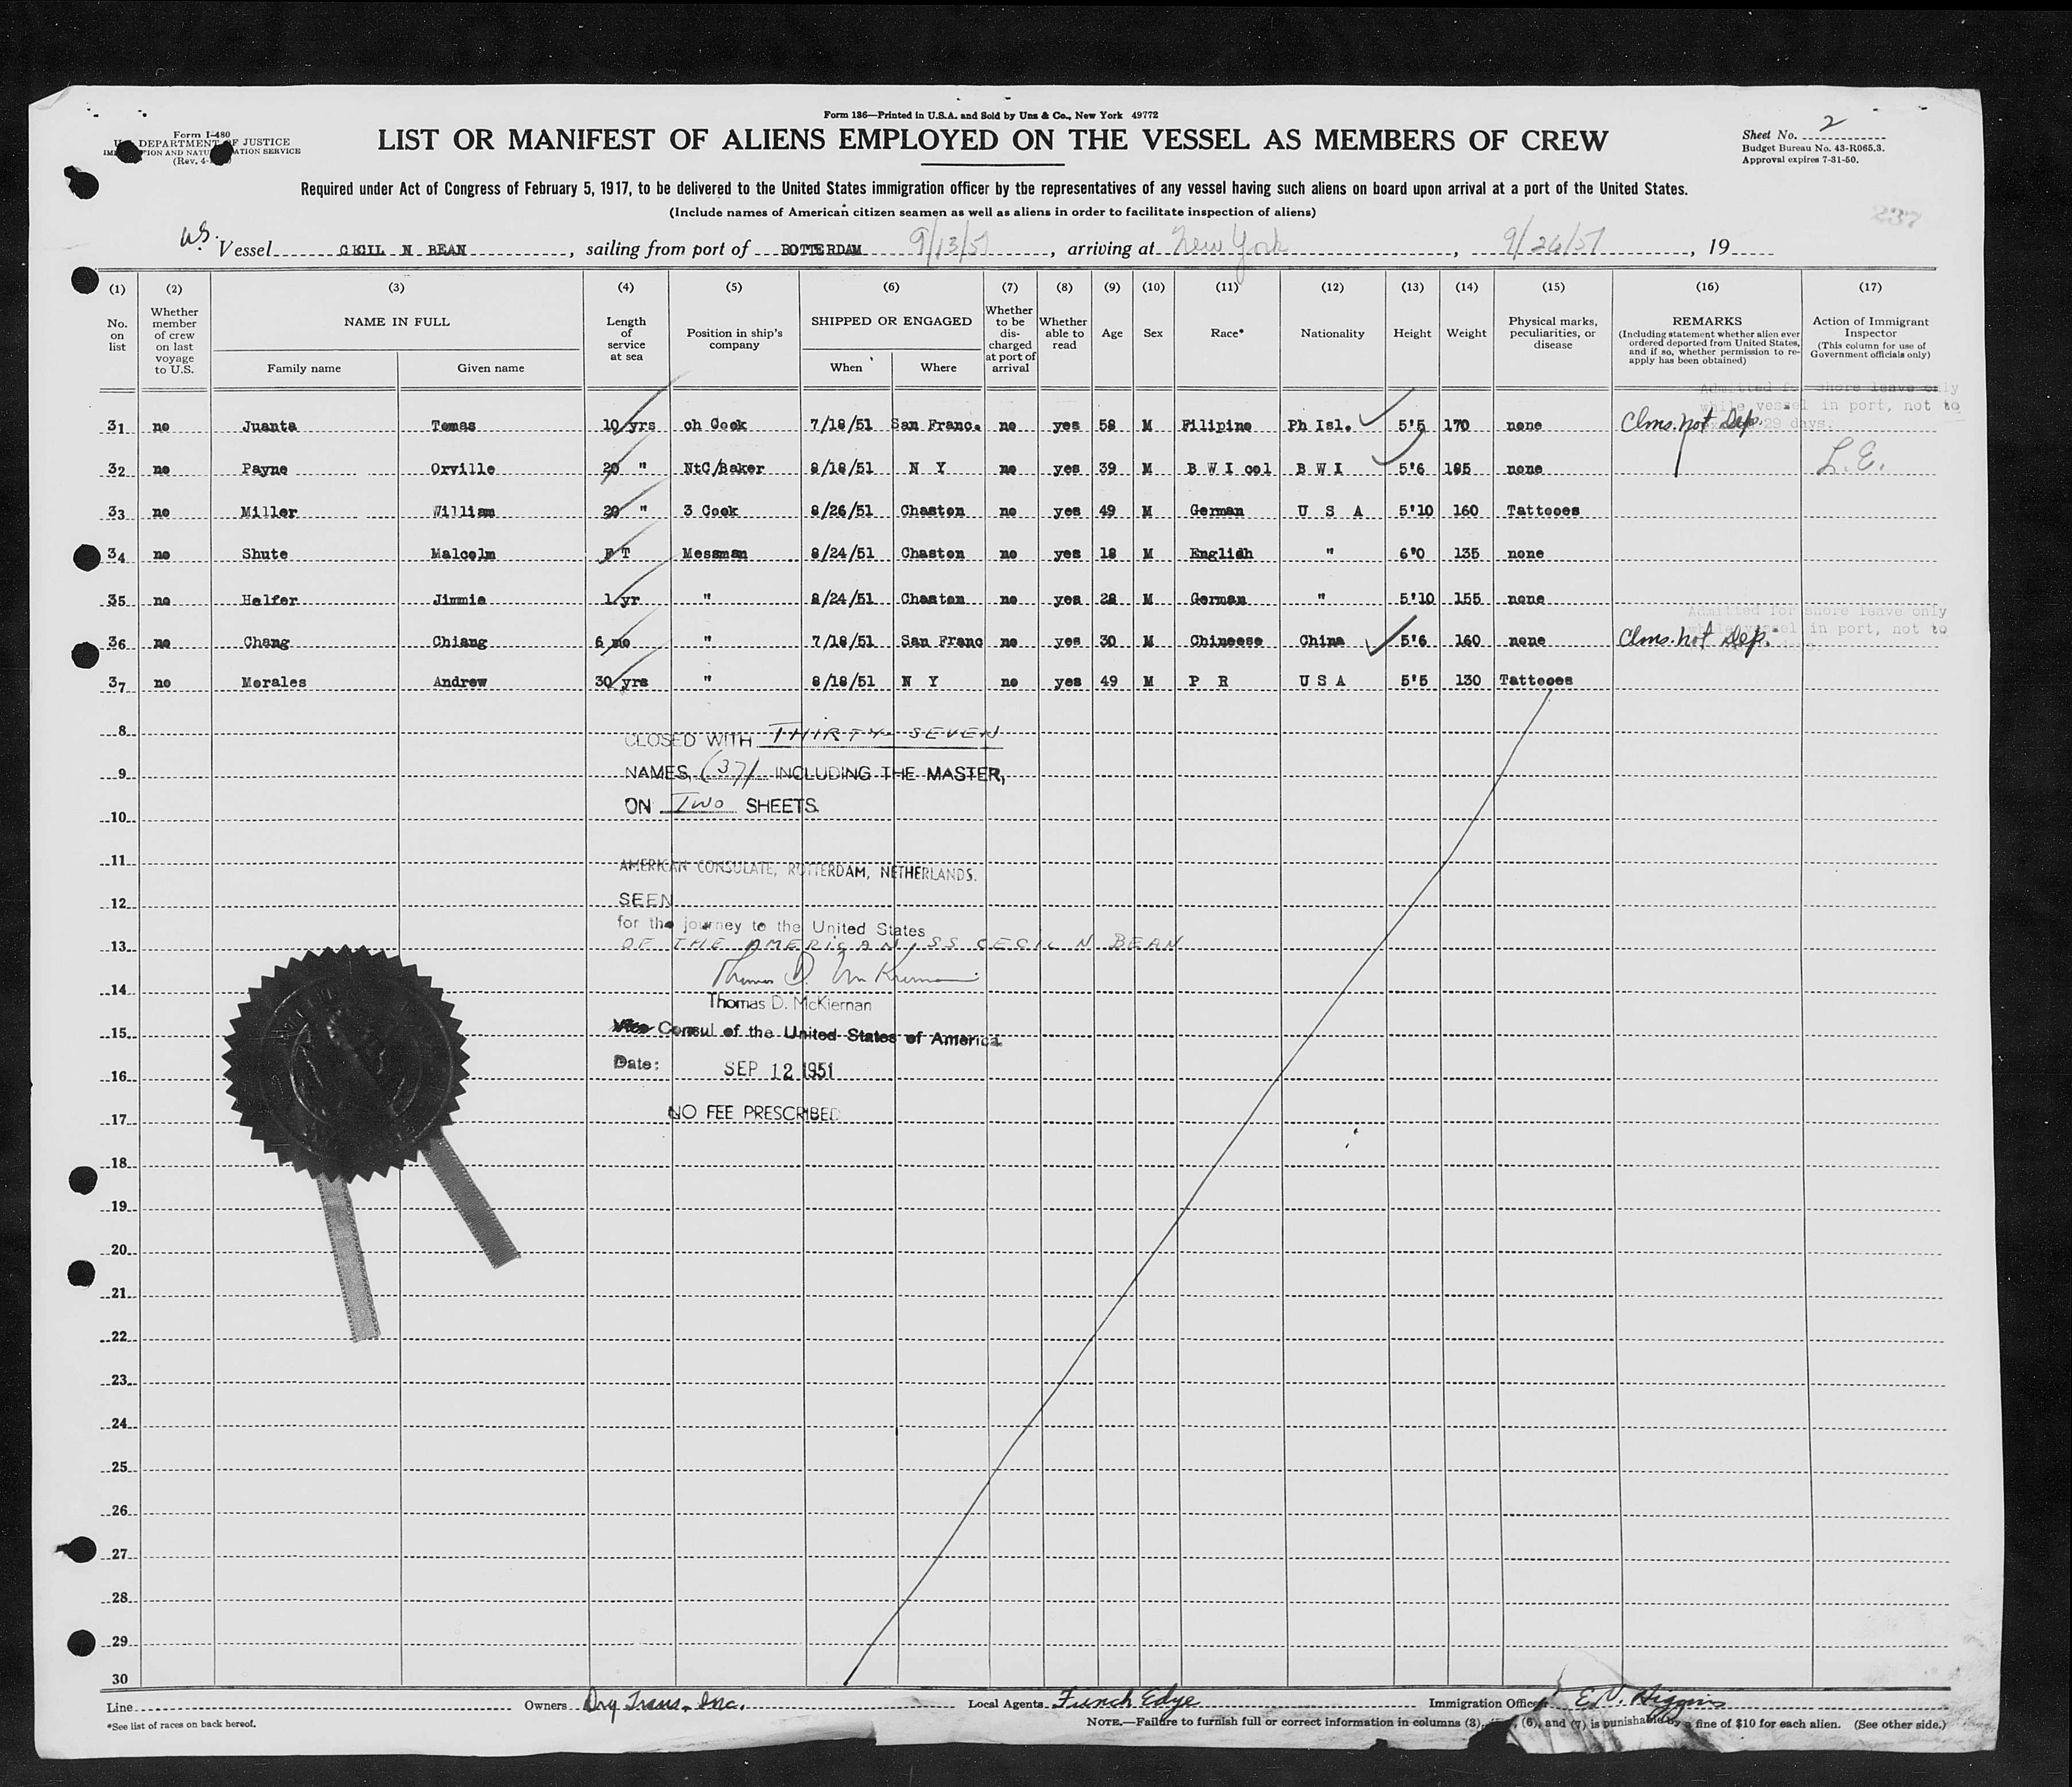 Form 136—Printed in U.S.A. and Sold by Unz & Co., New York 49772
Form I-480
DEPARTMENT OF JUSTICE
(Rev. 4-
LIST OR MANIFEST OF ALIENS EMPLOYED ON THE VESSEL AS MEMBERS OF CREW
Sheet No. 2
Budget Bureau No. 43-R065.3.
Approval expires 7-31-50.
Required under Act of Congress of February 5, 1917, to be delivered to the United States immigration officer by the representatives of any vessel having such aliens on board upon arrival at a port of the United States.
(Include names of American citizen seamen as well as aliens in order to facilitate inspection of aliens)
237
Vessel CECIL N BEAN, sailing from port of ROTTERDAM 9/13/51, arriving at New York, 9/26/51, 19
(1) (2) (3) (4) (5) (6) (7) (8) (9) (10) (11) (12) (13) (14) (15) (16) (17)
No. on list
Whether member of crew on last voyage to U.S.
NAME IN FULL
Family name Given name
Length of service at sea
Position in ship's company
SHIPPED OR ENGAGED
When Where
Whether to be discharged at port of arrival
Whether able to read
Age Sex Race* Nationality Height Weight
Physical marks, peculiarities, or disease
REMARKS
(Including statement whether alien ever ordered deported from United States, and if so, whether permission to reapply has been obtained)
Action of Immigrant Inspector
(This column for use of Government officials only)
Admitted for shore leave only
while vessel in port, not to
29 days.
31 no Juanta Tomas 10 yrs ch Cook 7/18/51 San Franc. no yes 58 M Filipino Ph Isl. 5'5 170 none Clms. not Dep.
32 no Payne Orville 20 " NtC/Baker 8/18/51 N Y no yes 39 M B W I col B W I 5'6 185 none L.E.
33 no Miller William 20 " 3 Cook 8/26/51 Chaston no yes 49 M German U S A 5'10 160 Tattooes
34 no Shute Malcolm F T Messman 8/24/51 Chaston no yes 18 M Englidh " 6'0 135 none
35 no Helfer Jimmie 1 yr " 8/24/51 Chaston no yes 28 M German " 5'10 155 none
Admitted for shore leave only
vessel in port, not to
36 no Chang Chiang 6 mo " 7/18/51 San Franc no yes 30 M Chineese China 5'6 160 none Clms. not Dep.
37 no Morales Andrew 30 yrs " 8/18/51 N Y no yes 49 M P R U S A 5'5 130 Tattooes
8
CLOSED WITH THIRTY SEVEN
9
NAMES, (37) INCLUDING THE MASTER,
ON Two SHEETS.
10
11
AMERICAN CONSULATE, ROTTERDAM, NETHERLANDS.
12
SEEN
for the journey to the United States
13
OF THE AMERICAN, SS CECIL N BEAN
14
Thomas D. McKiernan
Thomas D. McKiernan
15
Vice Consul of the United States of America
Date: SEP 12 1951
16
NO FEE PRESCRIBED
17
18
19
20
21
22
23
24
25
26
27
28
29
30
Line Owners Dry Trans. Inc. Local Agents Funch Edye Immigration Officer E. V. Higgins
*See list of races on back hereof.
NOTE.—Failure to furnish full or correct information in columns (3), (6), and (7) is punishable by a fine of $10 for each alien. (See other side.)